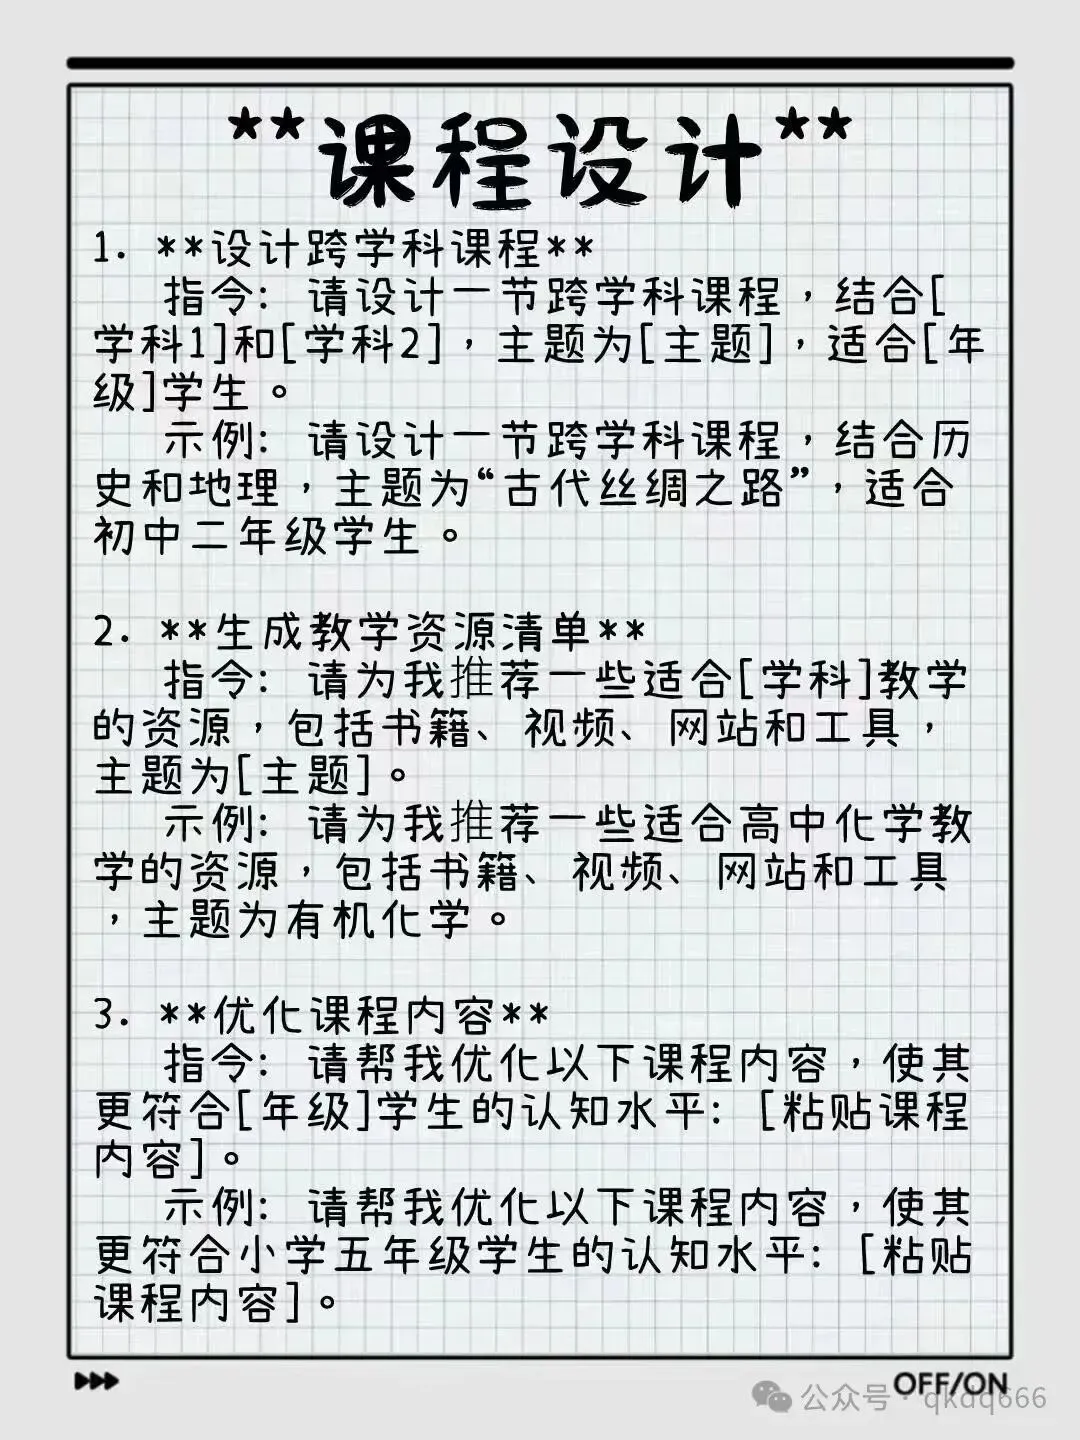 **课程设计**
1. **设计跨学科课程**
指令: 请设计一节跨学科课程，结合[
学科1]和[学科2]，主题为[主题]，适合[年
级]学生。
示例: 请设计一节跨学科课程，结合历
史和地理，主题为“古代丝绸之路”，适合
初中二年级学生。
2. **生成教学资源清单**
指令: 请为我推荐一些适合[学科]教学
的资源，包括书籍、视频、网站和工具，
主题为[主题]。
示例: 请为我推荐一些适合高中化学教
学的资源，包括书籍、视频、网站和工具
，主题为有机化学。
3. **优化课程内容**
指令: 请帮我优化以下课程内容，使其
更符合[年级]学生的认知水平: [粘贴课程
内容]。
示例: 请帮我优化以下课程内容，使其
更符合小学五年级学生的认知水平: [粘贴
课程内容]。
OFF/ON
公众号 · qkdq666